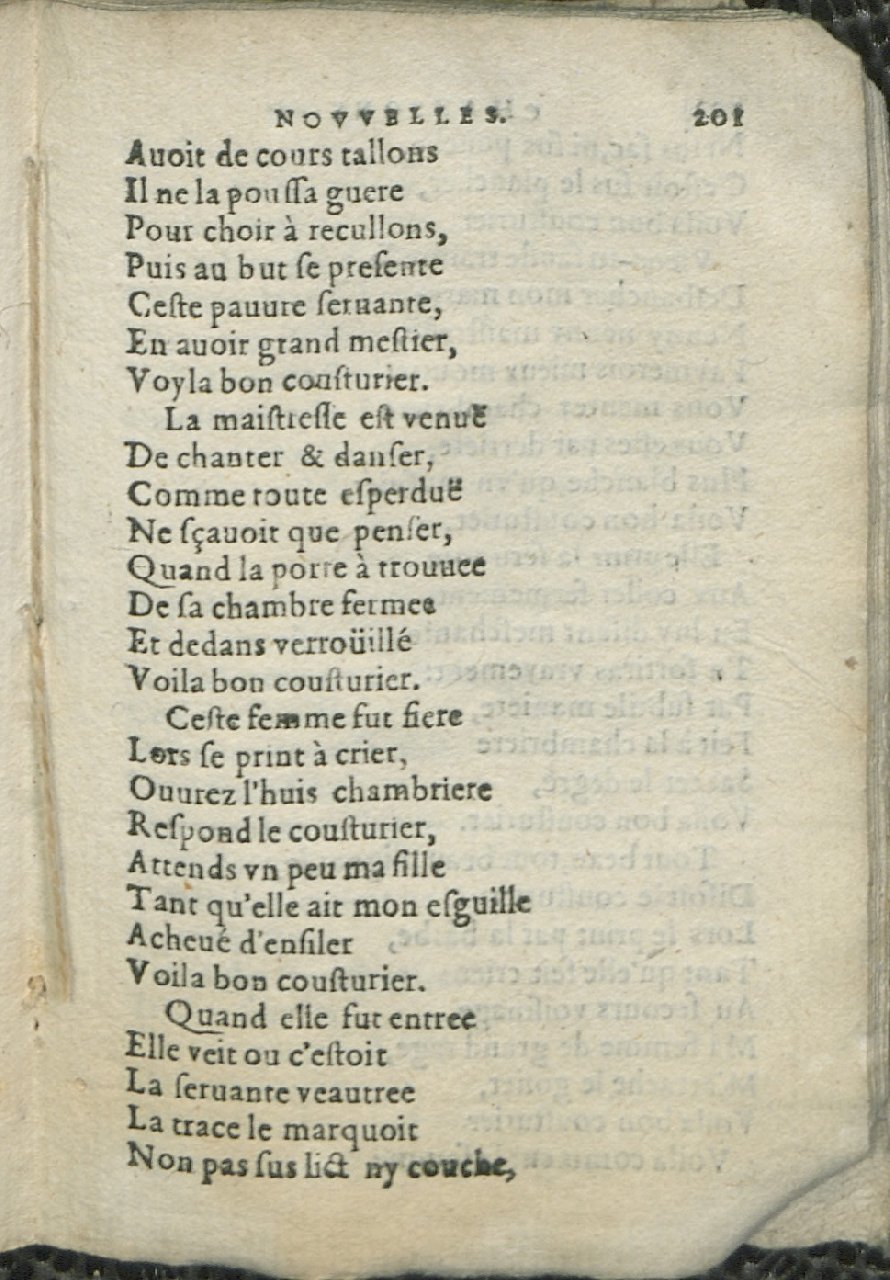 NOVVELLES. 201
Auoit de cours tallons
Il ne la pouſſa guere
Pour choir à recullons,
Puis au but ſe preſente
Ceſte pauure ſeruante,
En auoir grand meſtier,
Voyla bon couſturier.
La maiſtreſſe eſt venuë
De chanter & danſer,
Comme toute eſperduë
Ne sçauoit que penſer,
Quand la porte à trouuee
De ſa chambre fermee
Et dedans verroüillé
Voila bon couſturier.
Ceſte femme fut fiere
Lors ſe print à crier,
Ouurez l'huis chambriere
Reſpond le couſturier,
Attends vn peu ma fille
Tant qu'elle ait mon eſguille
Acheué d'enfiler
Voila bon couſturier.
Quand elle fut entree
Elle veit ou c'eſtoit
La ſeruante veautree
La trace le marquoit
Non pas ſus lict ny couche,